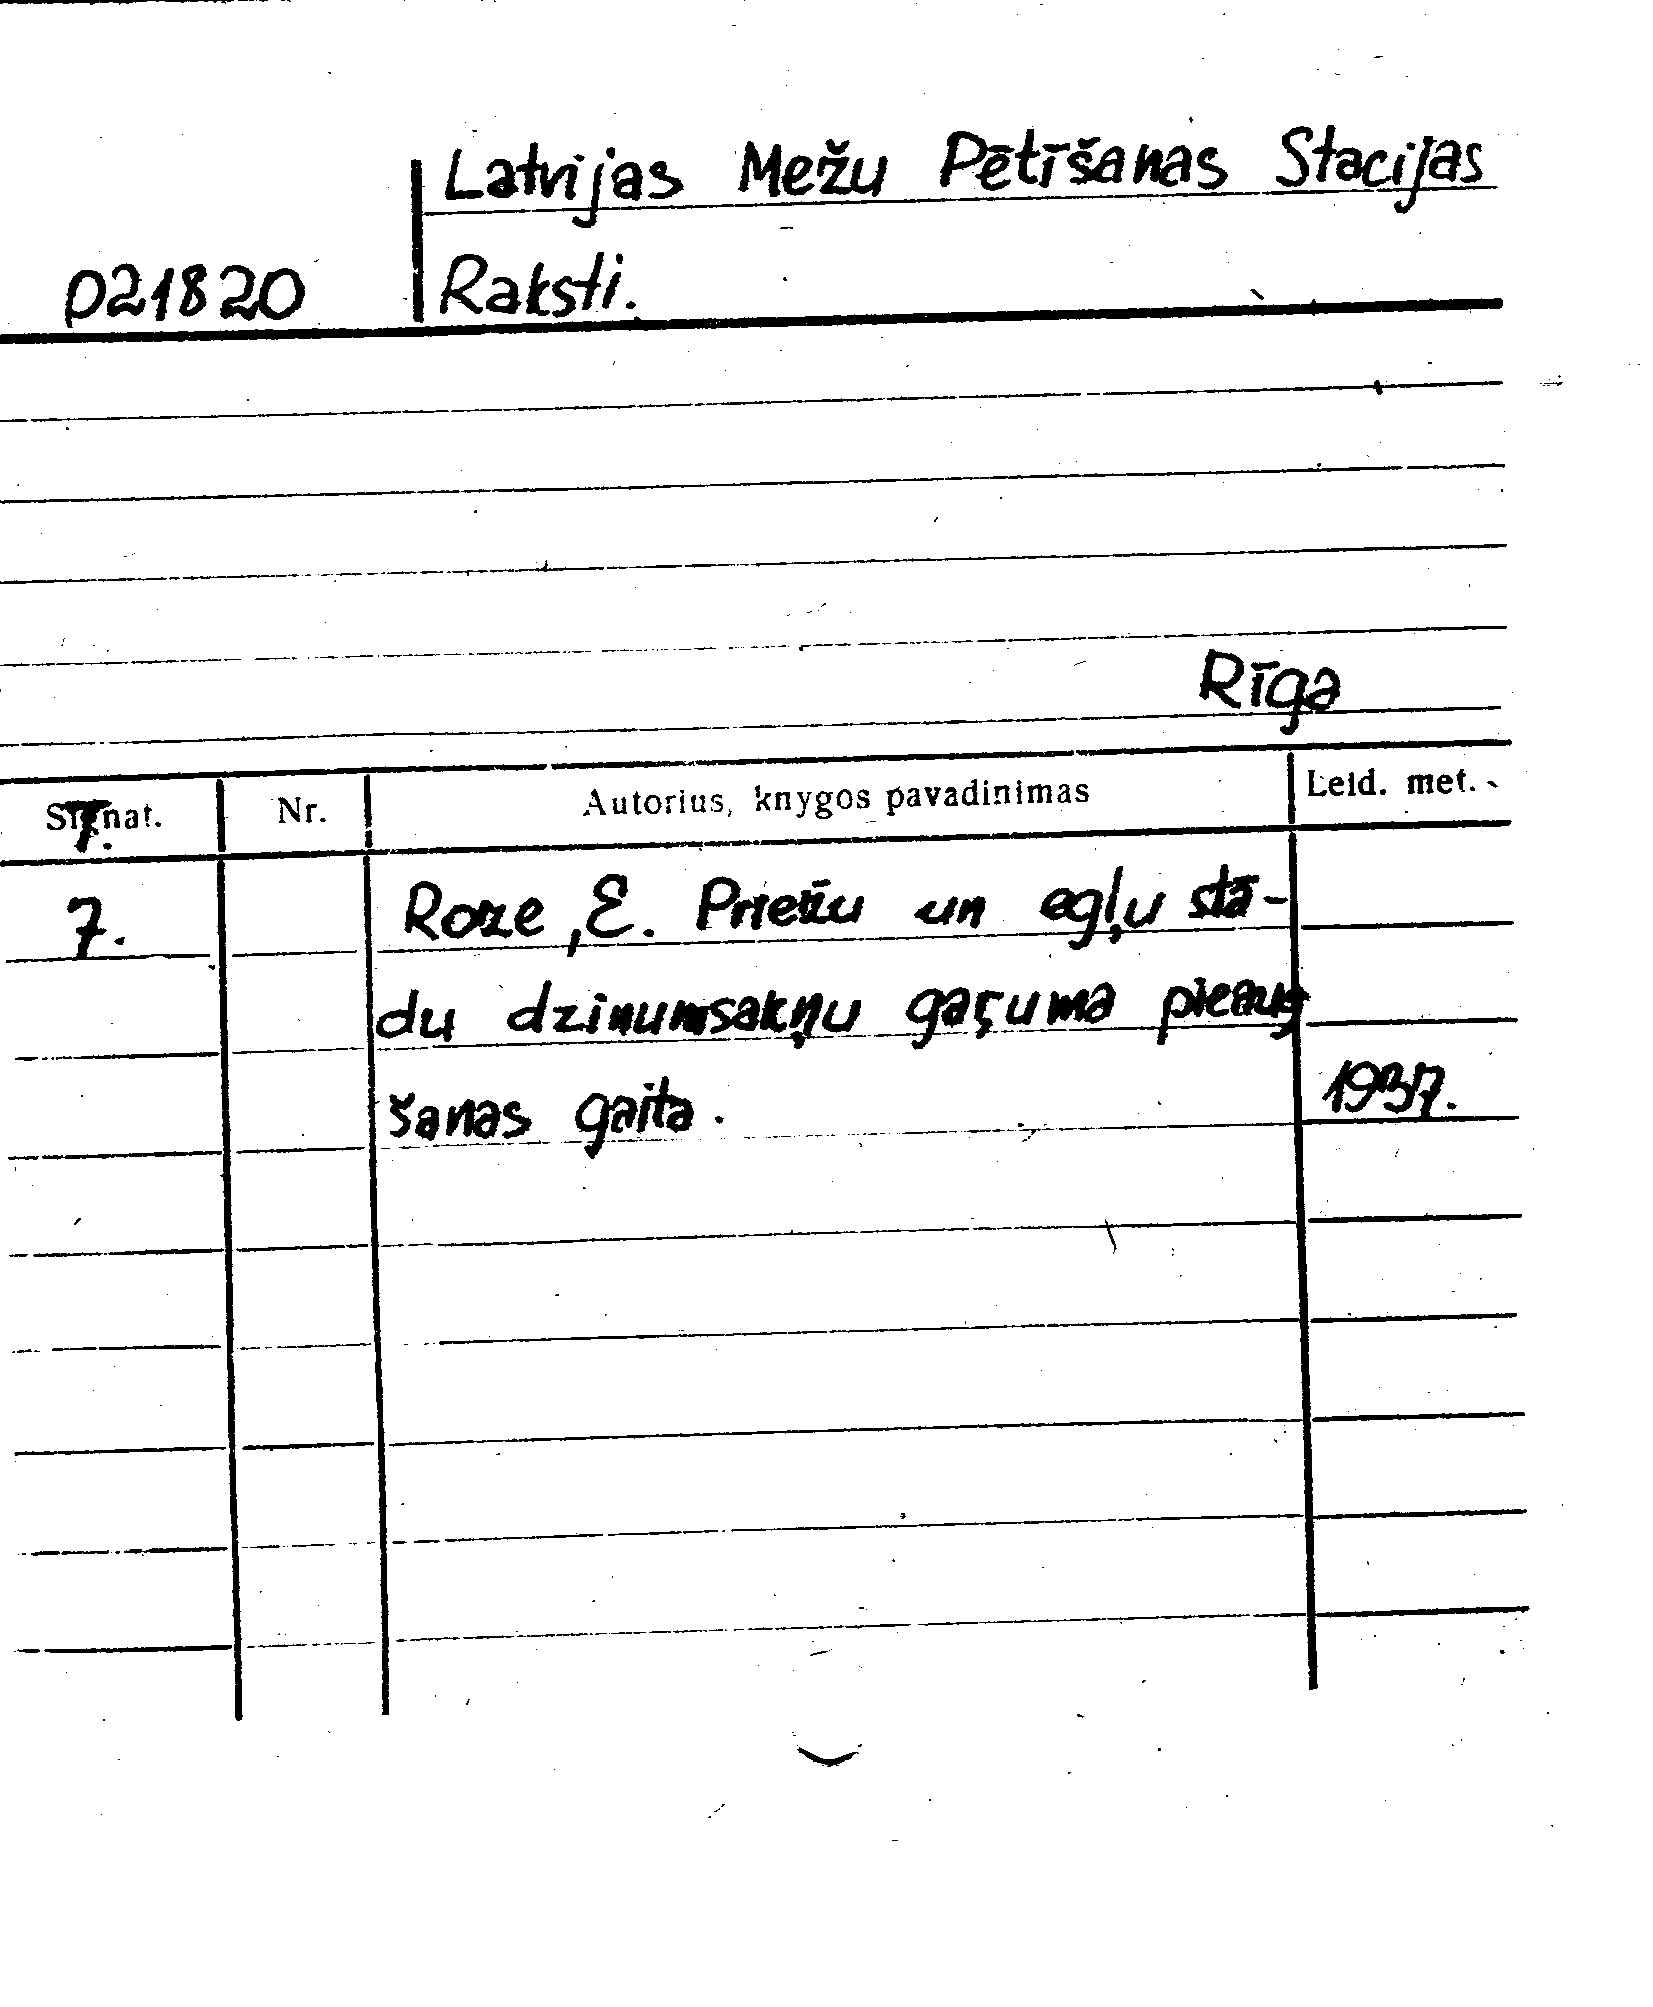 Latvijas Mežu Pētīšanas Stacijas
D21820 Raksti.
Rīga
Signat. Nr. Autorius, knygos pavadinimas Leid. met.
T.
7. Roze, E. Priežu un egļu stā-
du dzinumsakņu gaŗuma pieaug
šanas gaita. 1937.